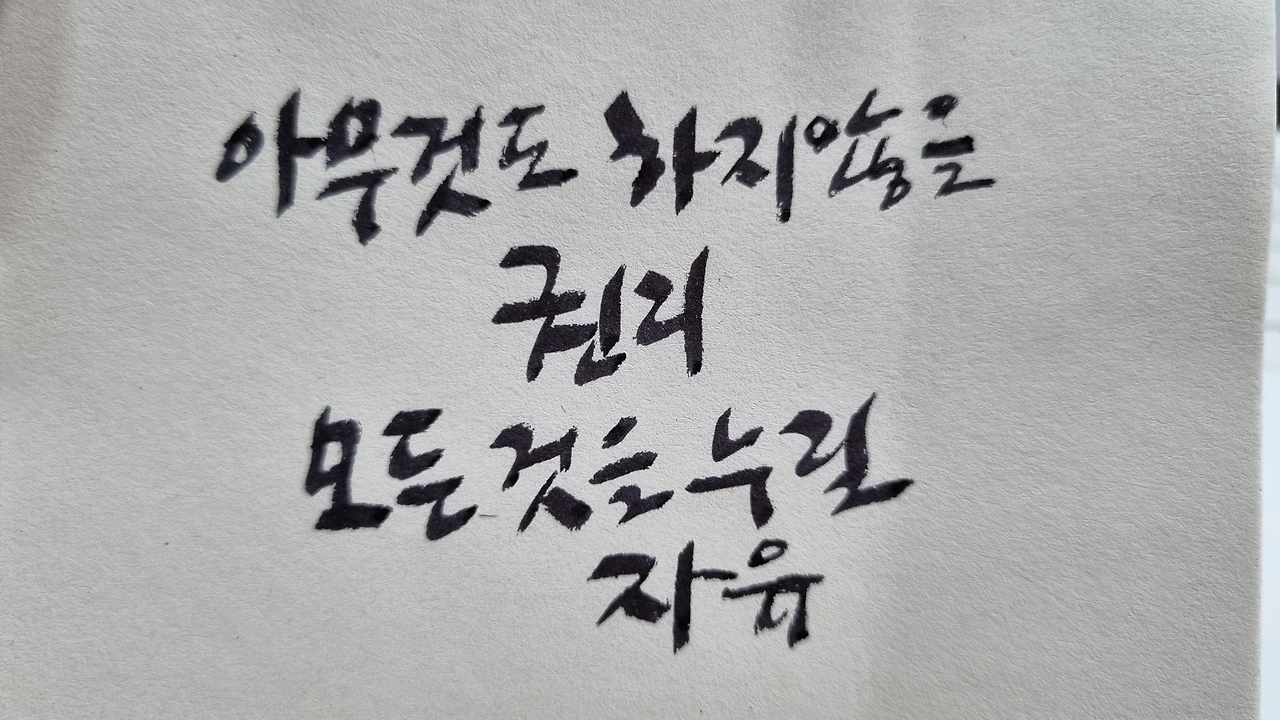 아무것도 하지않을
권리
모든것을 누릴
자유